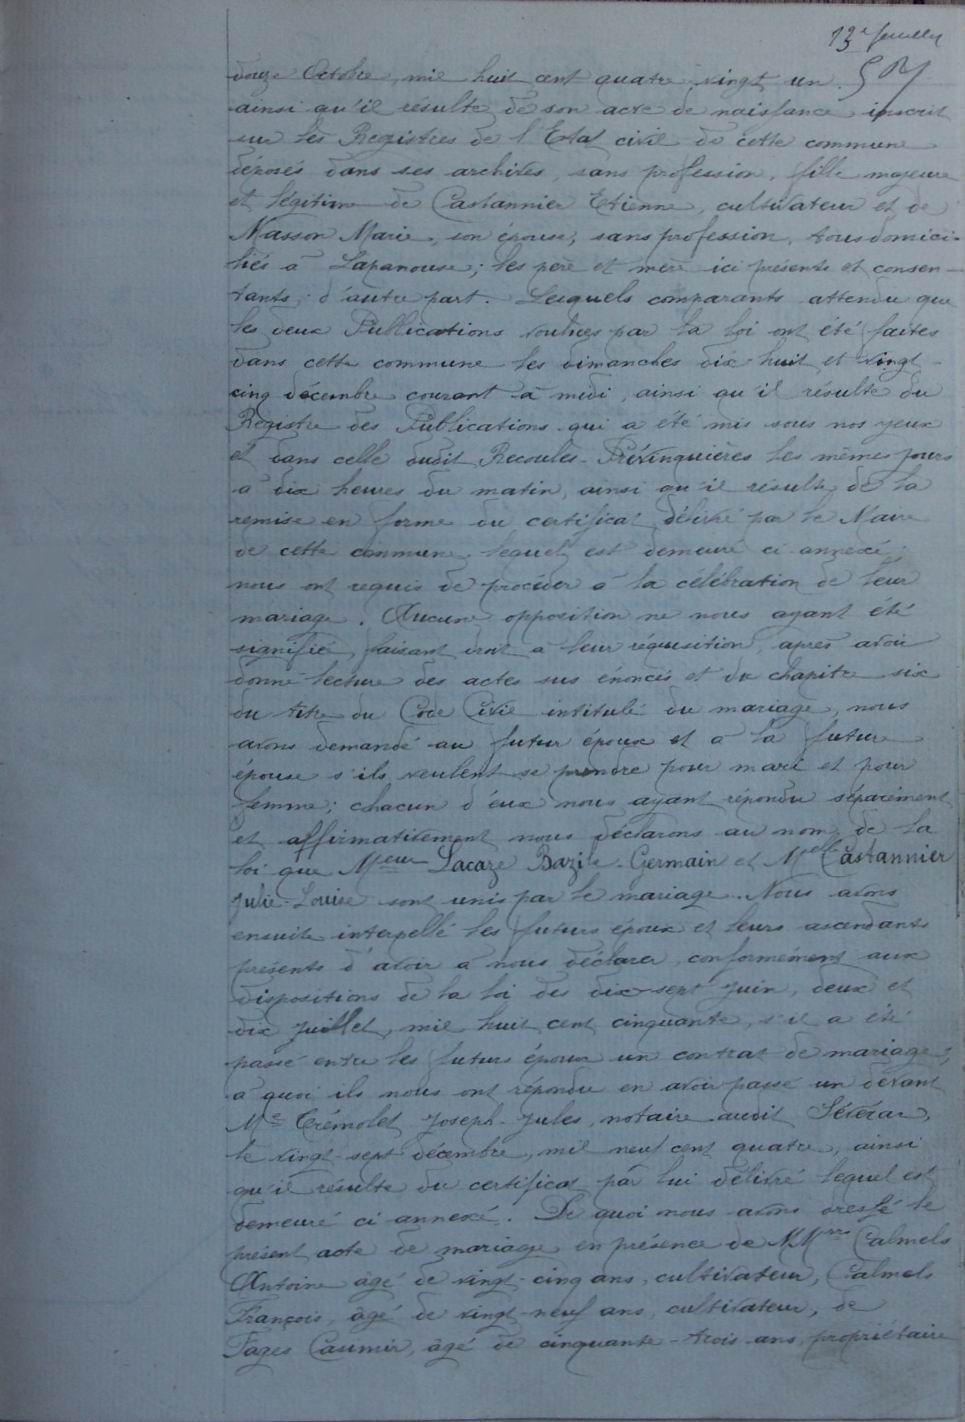 13e feuillet
douze Octobre mil huit cent quatre vingt un
ainsi qu'il résulte de son acte de naissance inscrit
sur les Registres de l'Etat civil de cette commune
déposés dans ses archives, sans profession, fille majeure
et légitime de Castannier Etienne, cultivateur et de
Masson Marie, son épouse, sans profession, tous domici-
liés à Lapanouse; les père et mère ici présents et consen-
tants; d'autre part. Lesquels comparants attendu que
les deux Publications voulues par la loi ont été faites
dans cette commune les dimanches dix-huit et vingt-
cinq décembre courant à midi, ainsi qu'il résulte du
Registre des Publications qui a été mis sous nos yeux
et dans celle dudit Recoules-Prévinquières les mêmes jours
à dix heures du matin, ainsi qu'il résulte de la
remise en forme du certificat délivré par le Maire
de cette commune lequel est demeuré ci annexé;
nous ont requis de procéder à la célébration de leur
mariage. Aucune opposition ne nous ayant été
signifiée, faisant droit à leur réquisition, après avoir
donné lecture des actes sus énoncés et du chapitre six
du titre du Code Civil intitulé du mariage, nous
avons demandé au futur époux et à la future
épouse s'ils veulent se prendre pour mari et pour
femme; chacun d'eux nous ayant répondu séparément
et affirmativement nous déclarons au nom de la
loi que Meur Lacaze Bazile-Germain et Melle Castannier
Julie-Louise sont unis par le mariage. Nous avons
ensuite interpellé les futurs époux et leurs ascendants
présents d'avoir à nous déclarer, conformément aux
dispositions de la loi des dix-sept juin, deux et
dix juillet, mil huit cent cinquante, s'il a été
passé entre les futurs époux un contrat de mariage;
à quoi ils nous ont répondu en avoir passé un devant
Me Trémolet Joseph-Jules, notaire audit Sévérac,
le vingt-sept décembre, mil neuf cent quatre, ainsi
qu'il résulte du certificat par lui délivré lequel est
demeuré ci annexé. De quoi nous avons dressé le
présent acte de mariage en présence de MMrs Calmels
Antoine âgé de vingt-cinq ans, cultivateur, Calmels
François, âgé de vingt-neuf ans, cultivateur, de
Fages Casimir, âgé de cinquante-trois ans, propriétaire